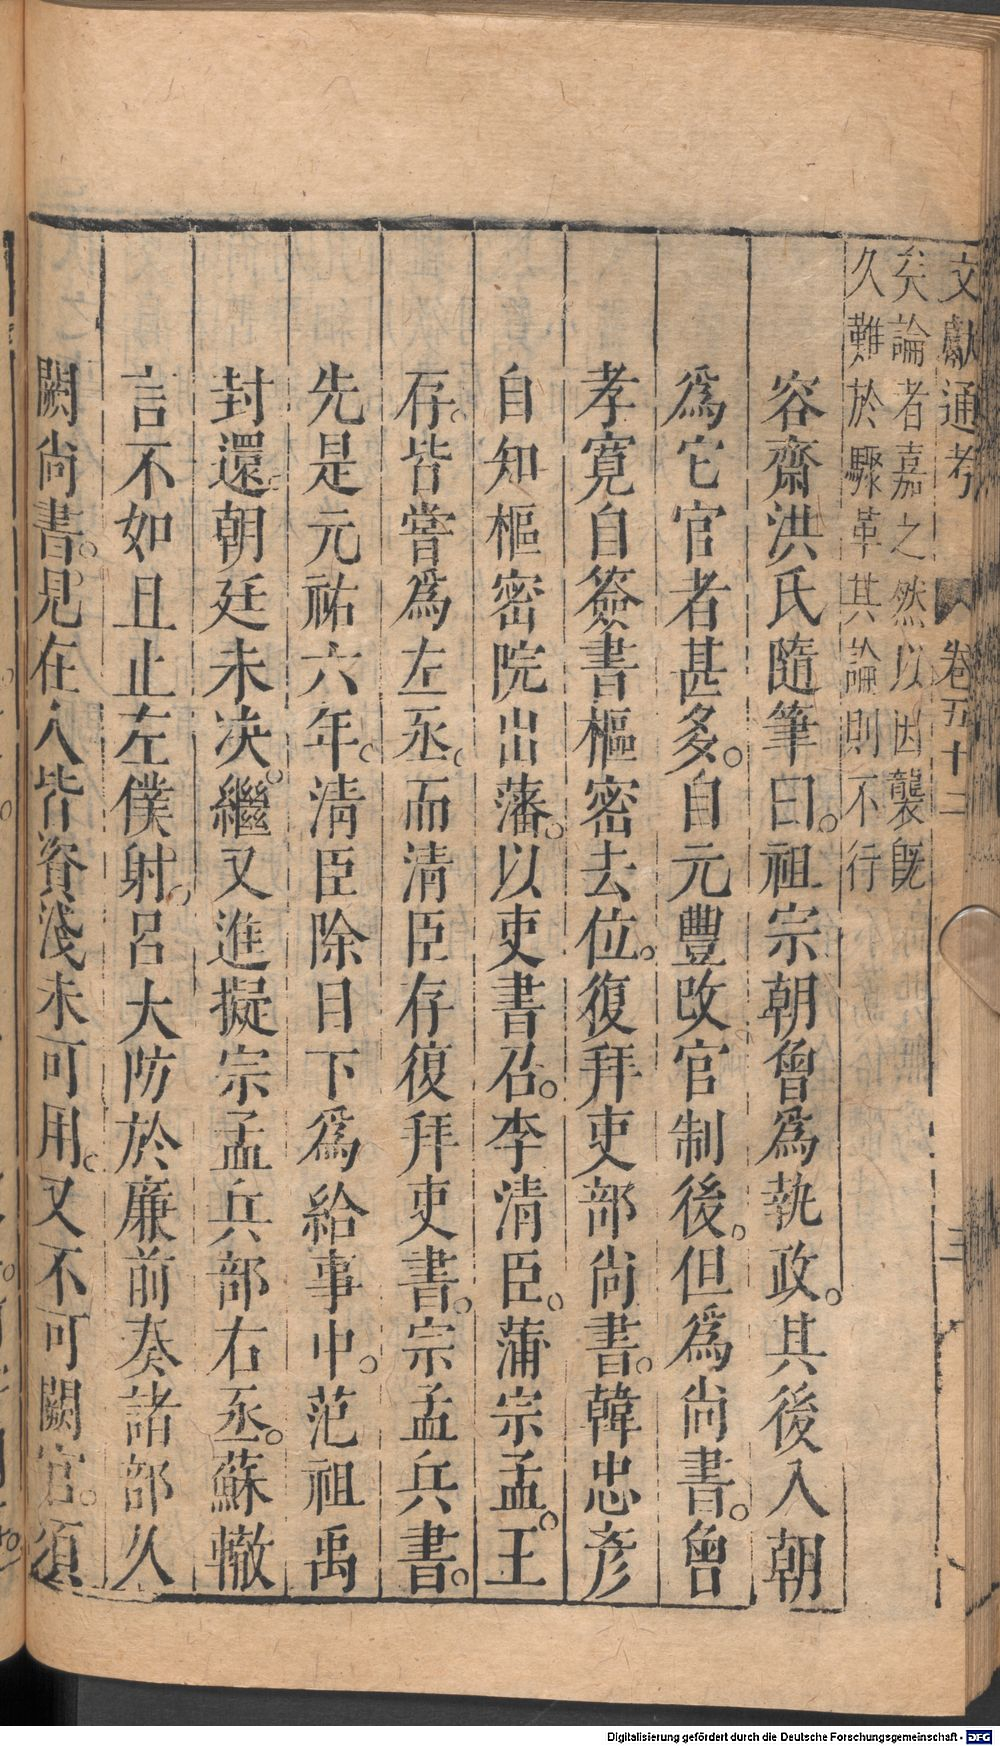 文獻通考 卷五十二 三
矣論者嘉之然以因襲旣
久難於驟革其論則不行
容齋洪氏隨筆曰。祖宗朝曾爲執政。其後入朝
爲它官者甚多。自元豐改官制後。但爲尚書。曾
孝寬自簽書樞密去位。復拜吏部尚書。韓忠彥
自知樞密院出藩。以吏書召。李清臣。蒲宗孟。王
存。皆嘗爲左丞。而清臣存復拜吏書。宗孟兵書。
先是元祐六年。清臣除目下爲給事中。范祖禹
封還。朝廷未決。繼又進擬宗孟兵部右丞。蘇轍
言不如且止左僕射。呂大防於廉前奏諸部久
闕尚書。見在人皆資淺未可用。又不可闕官。須
Digitalisierung gefördert durch die Deutsche Forschungsgemeinschaft - DFG